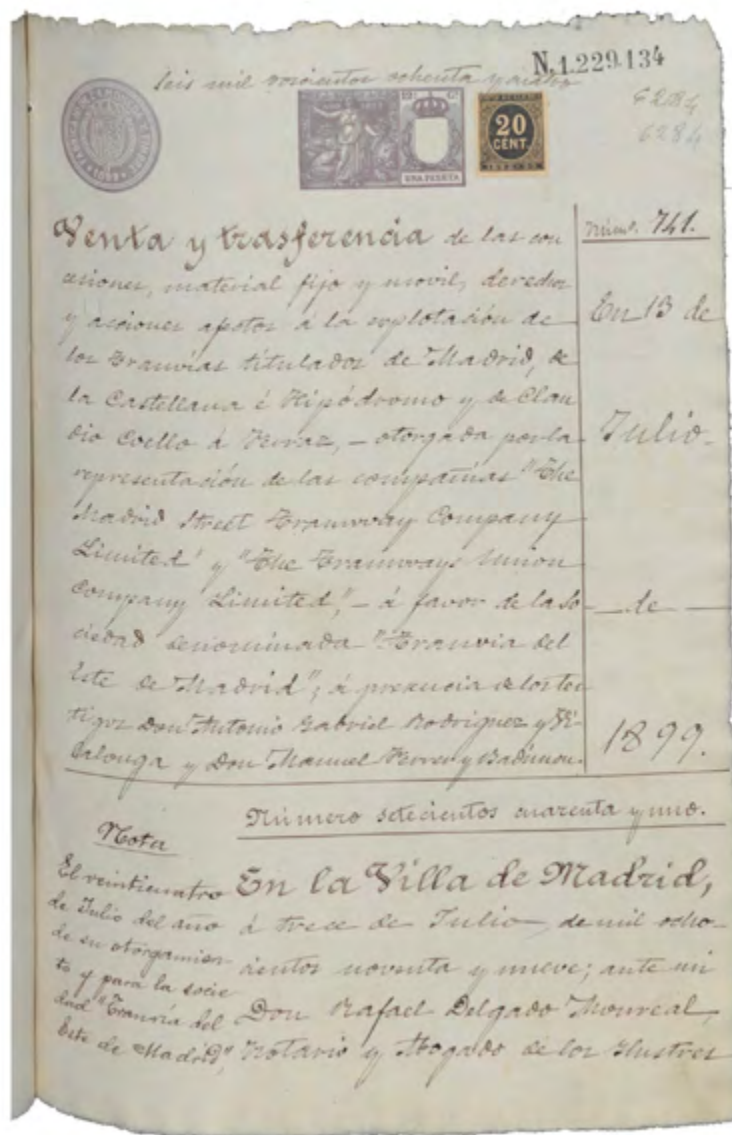 N.1.229.134
seis mil doscientos ochenta y cuatro
6284
6284
UNA PESETA
20
CENT.
Venta y trasferencia de las con
cesiones, material fijo y movil, derechos
y acciones afectos á la explotación de
los Tranvías titulados de Madrid, de
la Castellana é Hipódromo y de Clau
dio Coello á Ferraz, – otorgada por la
representación de las compañias "The
Madrid Street Tramway Company
Limited" y "The Tramways Union
Company Limited", – á favor de la So
ciedad denominada "Tranvia del
Este de Madrid", á presencia de los tes
tigos Don Antonio Gabriel Rodriguez y Vi
lalonga y Don Manuel Ferrer y
Núm. 741.
En 13 de
Julio
de
1899.
Número setecientos cuarenta y uno.
Nota
El veinticuatro
de Julio del año
de su otorgamien
to y para la socie
dad "Tranvía del
Este de Madrid",
En la Villa de Madrid,
á trece de Julio, de mil ocho-
cientos noventa y nueve; ante mi
Don Rafael Delgado Monreal,
Notario y Abogado de los Ilustres